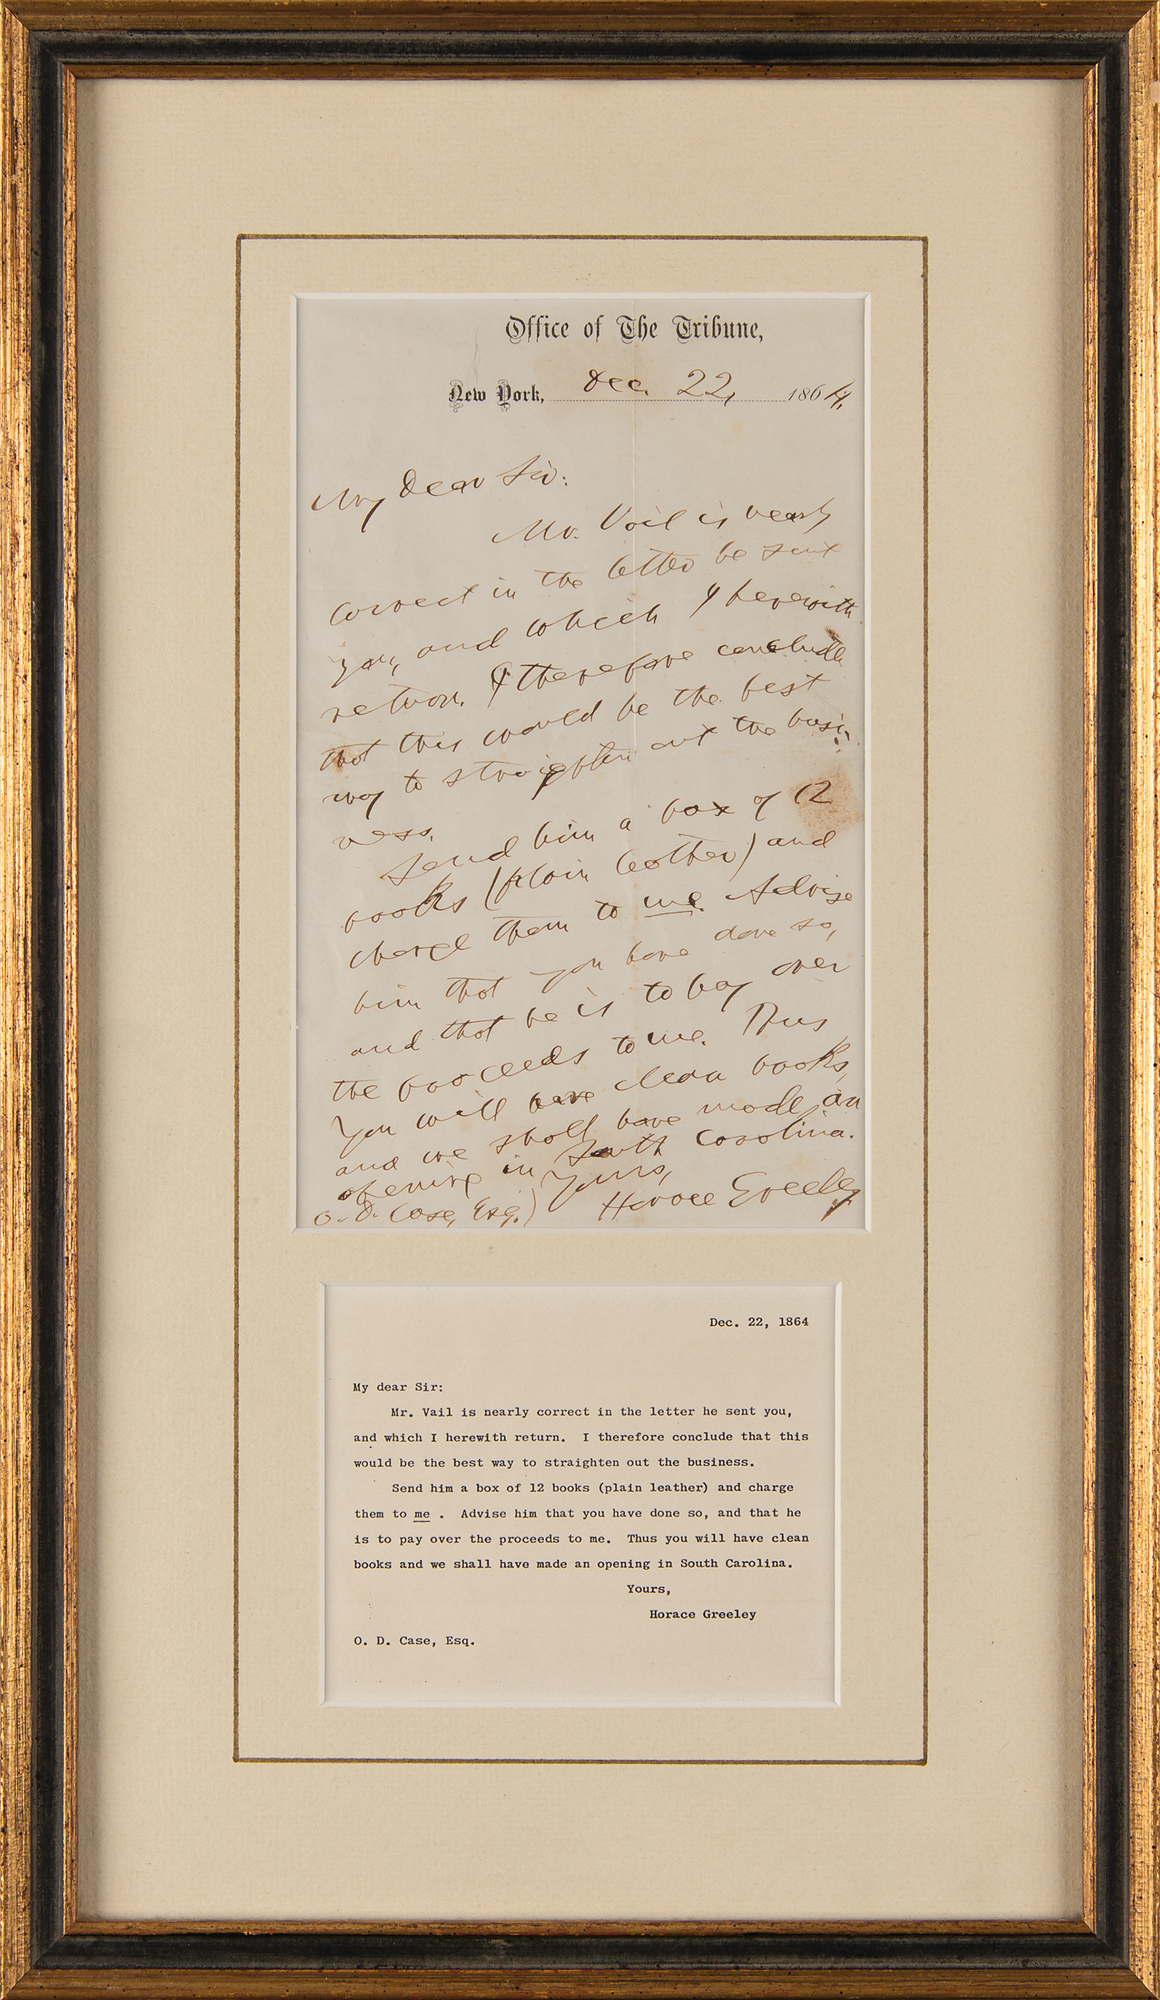 Office of The Tribune,
New York, Dec. 22, 1864.
My Dear Sir:
Mr. Vail is nearly
correct in the letter he sent
you, and which I herewith
return. I therefore conclude
that this would be the best
way to straighten out the busi-
ness.
Send him a box of 12
books (plain leather) and
charge them to me. Advise
him that you have done so,
and that he is to pay over
the proceeds to me. Thus
you will have clean books,
and we shall have made an
opening in South Carolina.
Yours,
Horace Greeley
O. D. Case, Esq.)
Dec. 22, 1864
My dear Sir:
Mr. Vail is nearly correct in the letter he sent you,
and which I herewith return. I therefore conclude that this
would be the best way to straighten out the business.
Send him a box of 12 books (plain leather) and charge
them to me . Advise him that you have done so, and that he
is to pay over the proceeds to me. Thus you will have clean
books and we shall have made an opening in South Carolina.
Yours,
Horace Greeley
O. D. Case, Esq.